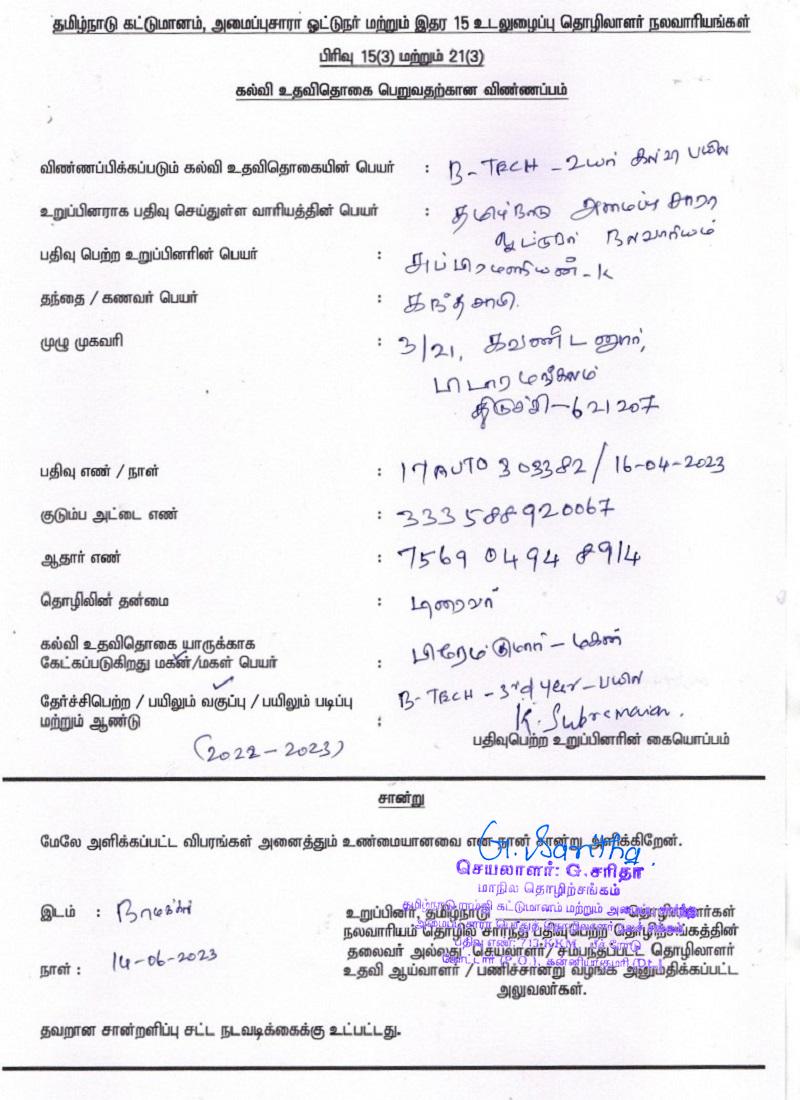 தமிழ்நாடு கட்டுமானம், அமைப்புசாரா ஓட்டுநர் மற்றும் இதர 15 உடலுழைப்பு தொழிலாளர் நலவாரியங்கள்
பிரிவு 15(3) மற்றும் 21(3)
கல்வி உதவிதொகை பெறுவதற்கான விண்ணப்பம்
விண்ணப்பிக்கப்படும் கல்வி உதவிதொகையின் பெயர் : B-TECH - உயர் கல்வி பயில
உறுப்பினராக பதிவு செய்துள்ள வாரியத்தின் பெயர் : தமிழ்நாடு அமைப்பு சாரா
ஓட்டுநர் நலவாரியம்
பதிவு பெற்ற உறுப்பினரின் பெயர் : சுப்பிரமணியன்-K
தந்தை / கணவர் பெயர் : கந்தசாமி
முழு முகவரி : 3/21,
திருச்சி-621207
பதிவு எண் / நாள் : 17 AUTO 303382 / 16-04-2023
குடும்ப அட்டை எண் : 333588920067
ஆதார் எண் : 7569 0494 8914
தொழிலின் தன்மை :
கல்வி உதவிதொகை யாருக்காக
கேட்கப்படுகிறது மகன்/மகள் பெயர் : பிரேம்குமார் - மகன்
தேர்ச்சிபெற்ற / பயிலும் வகுப்பு / பயிலும் படிப்பு : B-TECH - 3rd year - பயில
மற்றும் ஆண்டு :
K. Subremanian.
(2022-2023)
பதிவுபெற்ற உறுப்பினரின் கையொப்பம்
சான்று
மேலே அளிக்கப்பட்ட விபரங்கள் அனைத்தும் உண்மையானவை என நான் சான்று அளிக்கிறேன்.
G. Saritha.
செயலாளர்: G.சரிதா
மாநில தொழிற்சங்கம்
இடம் : நாமக்கல்
உறுப்பினர், தமிழ்நாடு தொழிலாளர்கள்
நலவாரியம் தொழில் சார்ந்த பதிவுபெற்ற தொழிற்சங்கத்தின்
நாள் : 14-06-2023
தலைவர் அல்லது செயலாளர்/ சம்பந்தப்பட்ட தொழிலாளர்
உதவி ஆய்வாளர் / பணிச்சான்று வழங்க அனுமதிக்கப்பட்ட
அலுவலர்கள்.
தவறான சான்றளிப்பு சட்ட நடவடிக்கைக்கு உட்பட்டது.